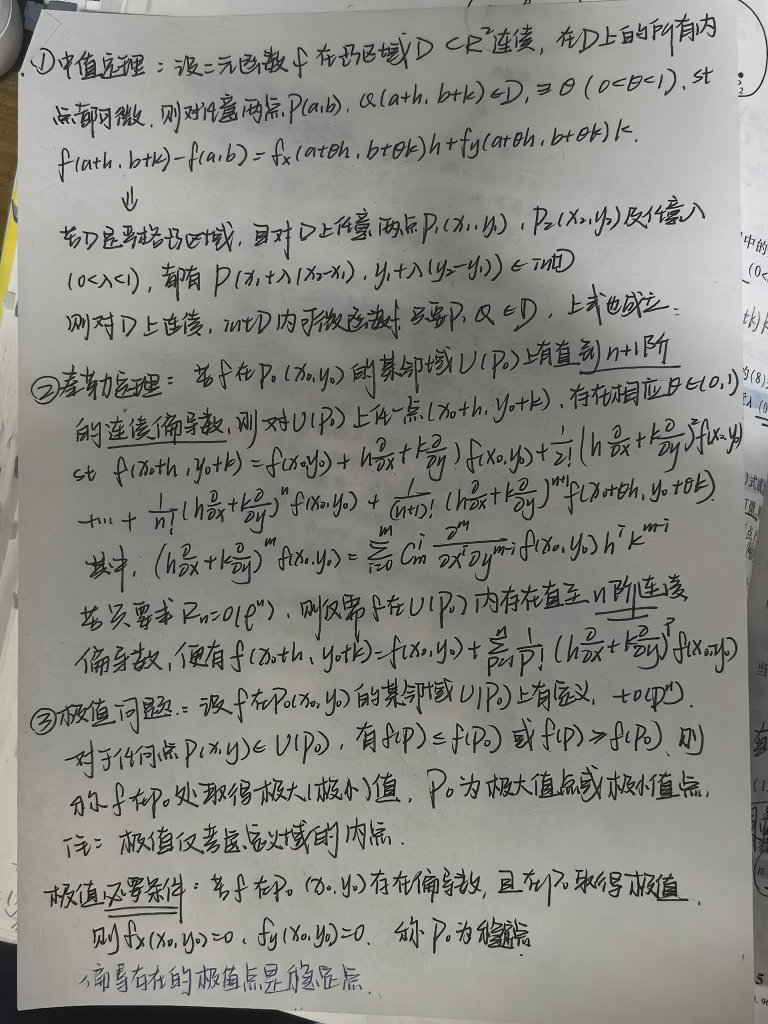 ①中值定理：设二元函数 f 在凸区域 D ⊂R²连续，在D上的所有内
点都可微，则对任意两点P(a,b)，Q(a+h, b+k)∈D，∃ θ (0<θ<1)，st
f(a+h, b+k)-f(a,b) = fx(a+θh, b+θk)h+fy(a+θh, b+θk)k.
⇓
若D是严格凸区域，且对D上任意两点P₁(x₁,y₁)，P₂(x₂,y₂)及任意λ
(0<λ<1)，都有 P(x₁+λ(x₂-x₁)，y₁+λ(y₂-y₁))∈intD
则对D上连续，intD内可微函数f，只要P，Q∈D，上式也成立.
②泰勒定理：若f在P₀(x₀,y₀)的某邻域U(P₀)上有直到n+1阶
的连续偏导数，则对U(P₀)上任一点(x₀+h, y₀+k)，存在相应θ∈(0,1)
st f(x₀+h, y₀+k)=f(x₀,y₀)+h∂/∂x+k∂/∂y)f(x₀,y₀)+1/2!(h∂/∂x+k∂/∂y)²f(x₀,y₀)
+...+1/n!(h∂/∂x+k∂/∂y)ⁿf(x₀,y₀)+1/(n+1)!(h∂/∂x+k∂/∂y)ⁿ⁺¹f(x₀+θh, y₀+θk).
其中，(h∂/∂x+k∂/∂y)ᵐf(x₀,y₀)=∑ᵢ₌₀ᵐCₘⁱ ∂ᵐ/∂xⁱ∂yᵐ⁻ⁱ f(x₀,y₀)hⁱkᵐ⁻ⁱ
若只要求 Rn=o(ρⁿ)，则仅需f在U(P₀)内存在直至n阶连续
偏导数，便有f(x₀+h, y₀+k)=f(x₀,y₀)+∑ₚ₌₁ⁿ1/p!(h∂/∂x+k∂/∂y)ᵖf(x₀,y₀)
+o(ρⁿ).
③极值问题：设f在P₀(x₀,y₀)的某邻域U(P₀)上有定义，
对于任何点P(x,y)∈U(P₀)，有f(P)≤f(P₀)或f(P)≥f(P₀)，则
称f在P₀处取得极大(极小)值，P₀为极大值点或极小值点.
注：极值仅考虑定义域的内点.
极值必要条件：若f在P₀(x₀,y₀)存在偏导数，且在P₀取得极值.
则fx(x₀,y₀)=0，fy(x₀,y₀)=0. 称P₀为稳定点
偏导存在的极值点是稳定点.